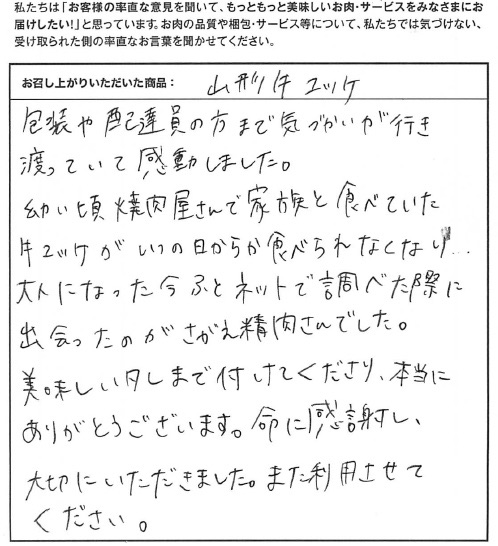 私たちは「お客様の率直な意見を聞いて、もっともっと美味しいお肉・サービスをみなさまにお
届けしたい!」と思っています。お肉の品質や梱包・サービス等について、私たちでは気づけない、
受け取られた側の率直なお言葉を聞かせてください。
お召し上がりいただいた商品： 山形牛ユッケ
包装や配達員の方まで気づかいが行き
渡っていて感動しました。
幼い頃焼肉屋さんで家族と食べていた
牛ユッケがいつの日からか食べられなくなり…
大人になった今ふとネットで調べた際に
出会ったのがさがえ精肉さんでした。
美味しいタレまで付けてくださり、本当に
ありがとうございます。命に感謝し、
大切にいただきました。また利用させて
ください。